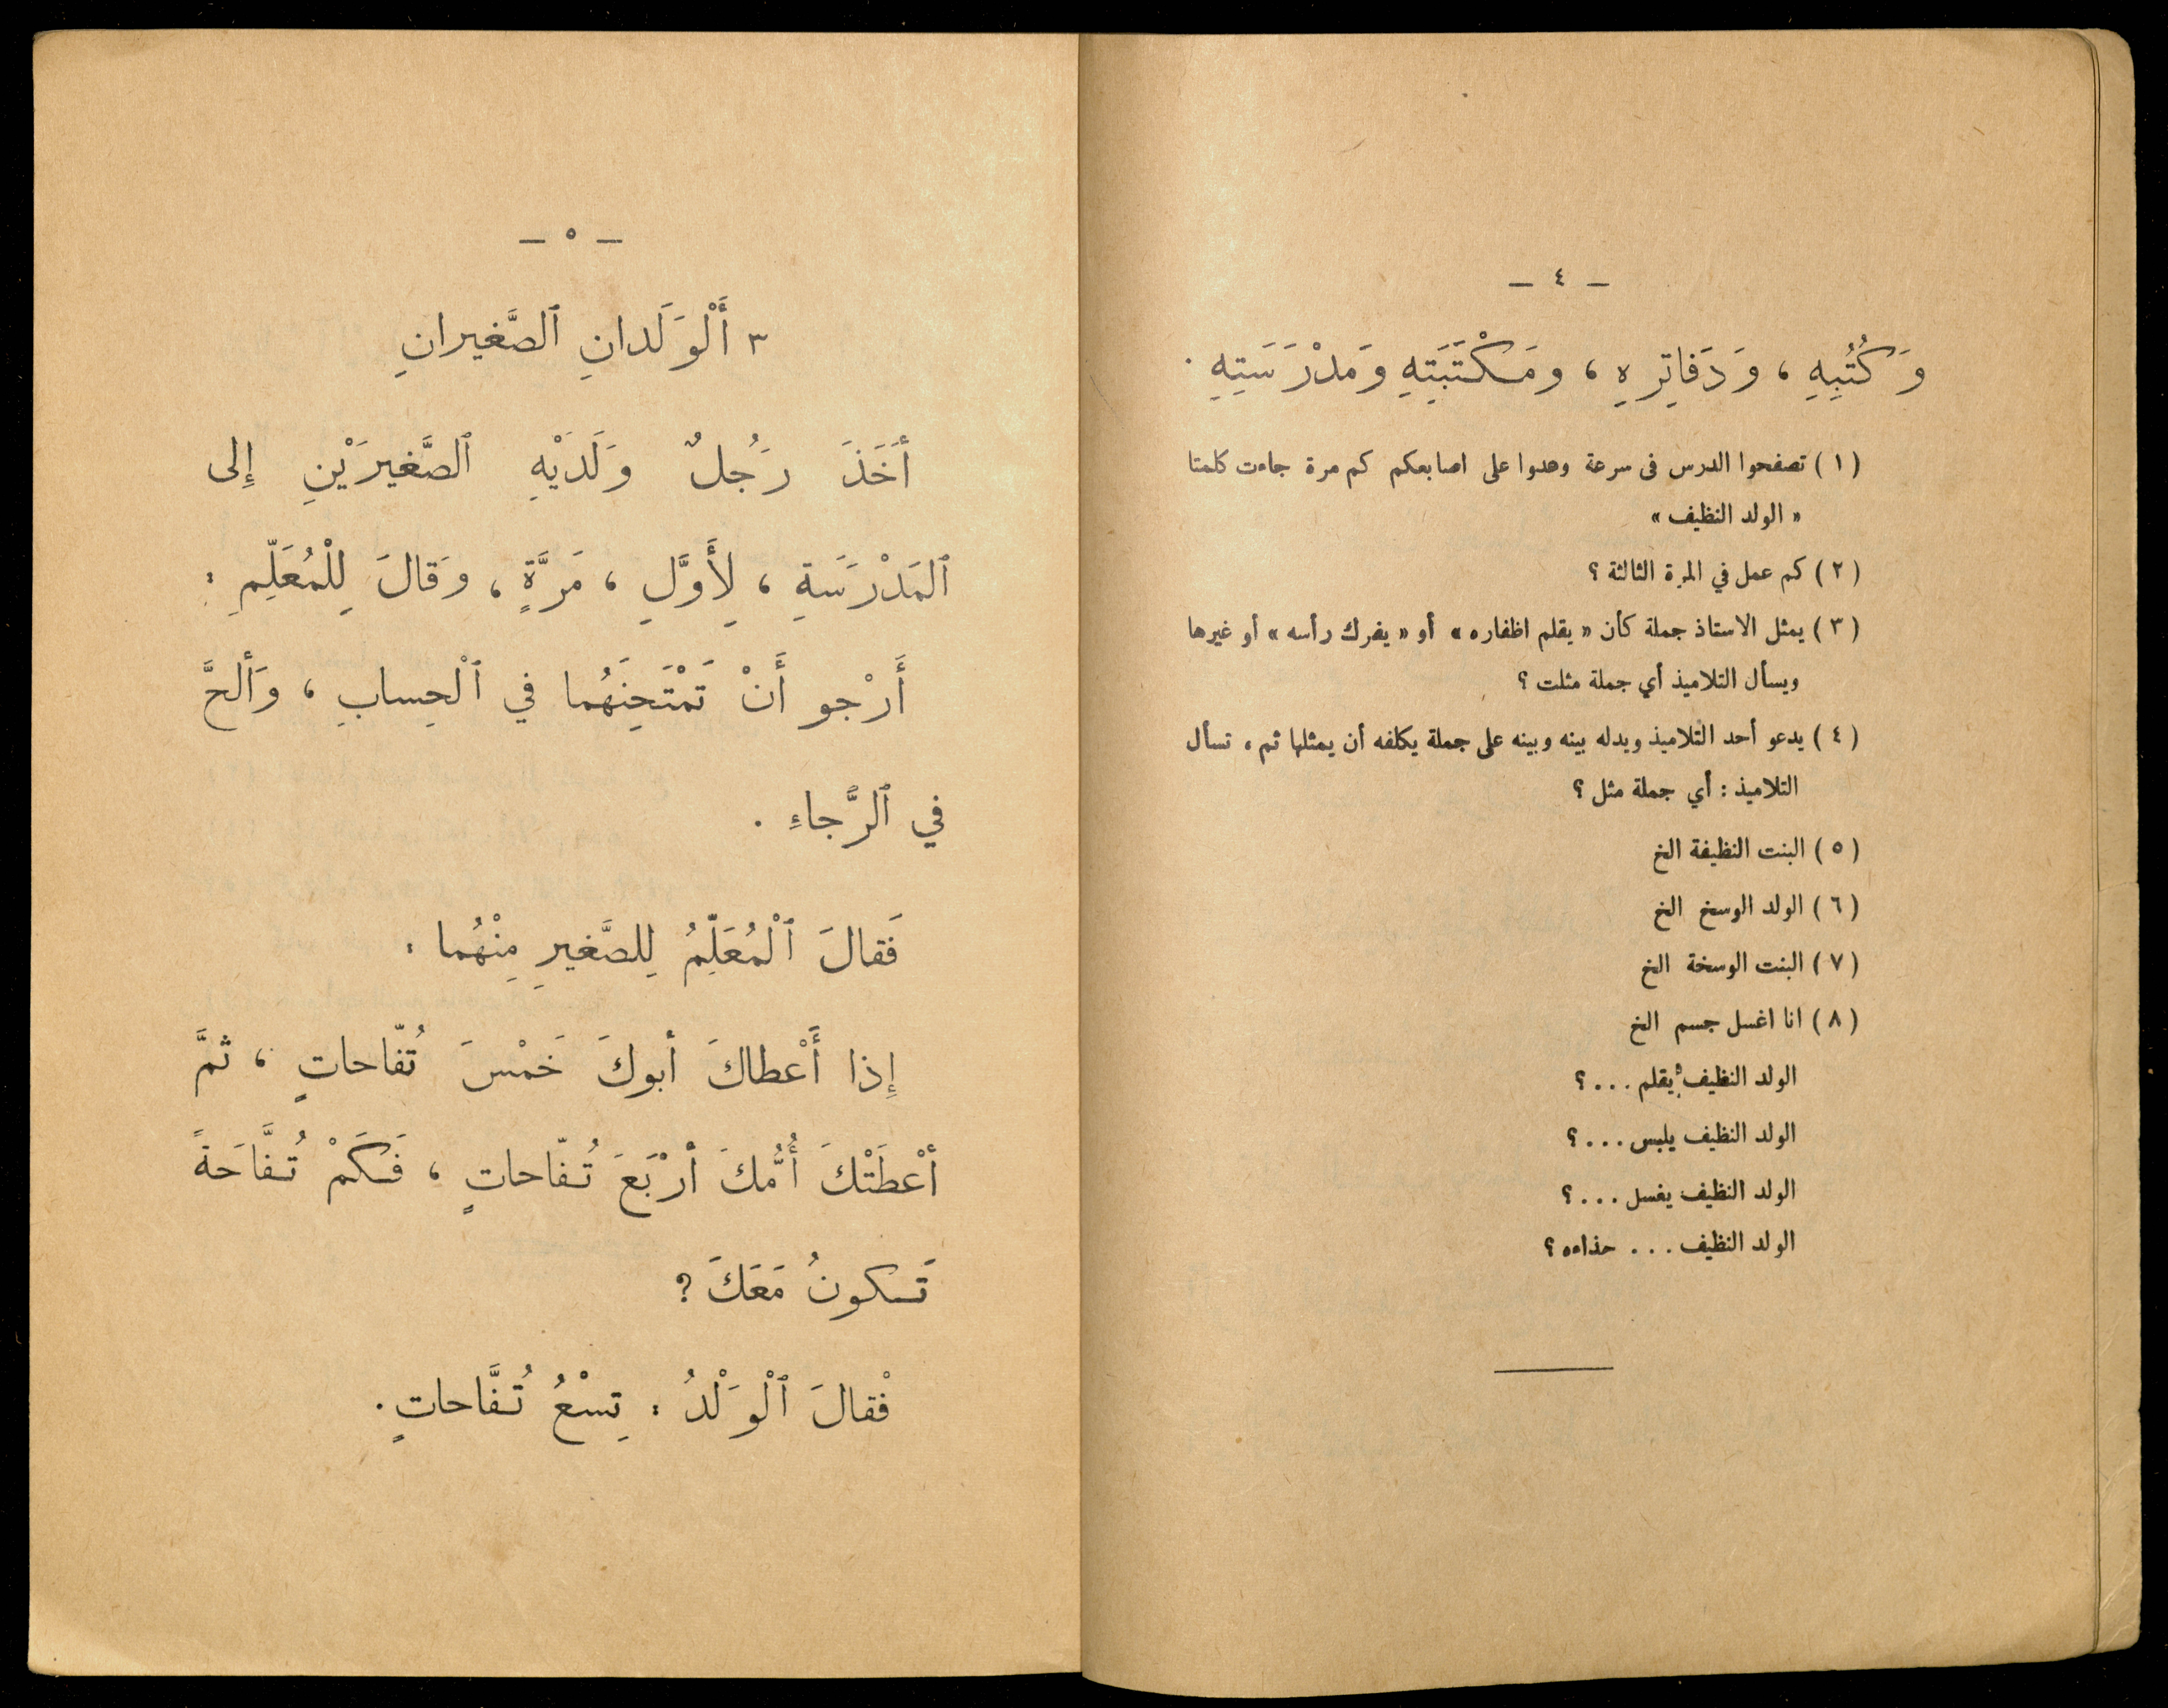 — ٤ —
وَكُتُبِهِ ، وَدَفاتِرِهِ ، ومَكْتَبَتِهِ وَمَدْرَسَتِهِ .
( ١ ) تصفحوا الدرس فى سرعة وعدوا على اصابعكم كم مرة جاءت كلمتا
« الولد النظيف »
( ٢ ) كم عمل في المرة الثالثة ؟
( ٣ ) يمثل الاستاذ جملة كأن « يقلم اظفاره » أو « يفرك رأسه » أو غيرها
ويسأل التلاميذ أي جملة مثلت ؟
( ٤ ) يدعو أحد التلاميذ ويدله بينه وبينه على جملة يكلفه أن يمثلها ثم ، تسأل
التلاميذ : أي جملة مثل ؟
( ٥ ) البنت النظيفة الخ
( ٦ ) الولد الوسخ الخ
( ٧ ) البنت الوسخة الخ
( ٨ ) انا اغسل جسم الخ
الولد النظيف يقلم . . . ؟
الولد النظيف يلبس . . . ؟
الولد النظيف يغسل . . . ؟
الولد النظيف . . . حذاءه ؟
— ٥ —
٣ أَلْوَلَدانِ ٱلصَّغيرانِ
أخَذَ رَجُلٌ وَلَدَيْهِ ٱلصَّغيرَيْنِ إِلى
ٱلمَدْرَسَةِ ، لِأَوَّلِ ، مَرَّةٍ ، وَقالَ لِلْمُعَلِّمِ :
أَرْجو أَنْ تَمْتَحِنَهُما في ٱلْحِسابِ ، وَألحَّ
في ٱلرَّجاءِ .
فَقالَ ٱلْمُعَلِّمُ لِلصَّغيرِ مِنْهُما :
إِذا أَعْطاكَ أبوكَ خَمْسَ تُفّاحاتٍ ، ثمَّ
أعْطَتْكَ أُمُّكَ أرْبَعَ تُفّاحاتٍ ، فَكَمْ تُفَّاحَةً
تَكونُ مَعَكَ ?
فْقالَ ٱلْوَلْدُ : تِسْعُ تُفَّاحاتٍ .